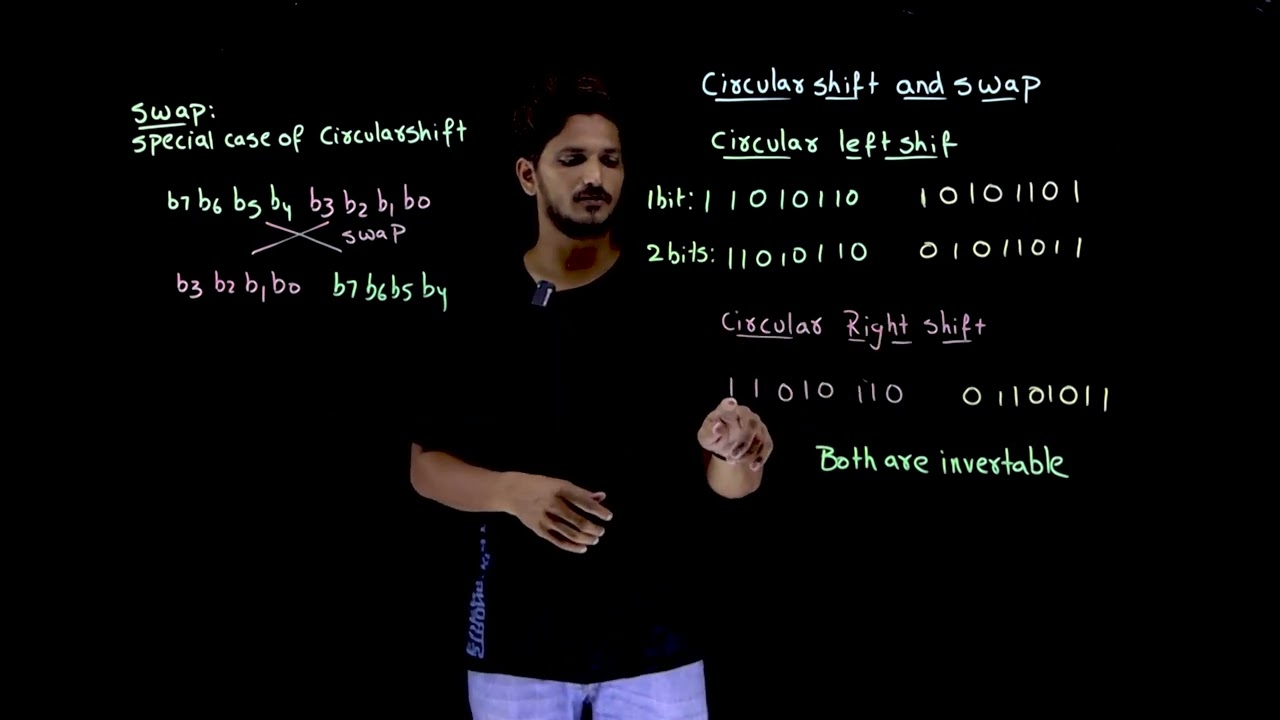 Circular shift and swap
swap:
special case of Circularshift
b7 b6 b5 b4 b3 b2 b1 b0
swap
b3 b2 b1 b0 b7 b6 b5 b4
Circular left shif
1bit: 1 1 0 1 0 1 1 0 1 0 1 0 1 1 0 1
2bits: 1 1 0 1 0 1 1 0 0 1 0 1 1 0 1 1
Circular Right shift
1 1 0 1 0 1 1 0 0 1 1 0 1 0 1 1
Both are invertable